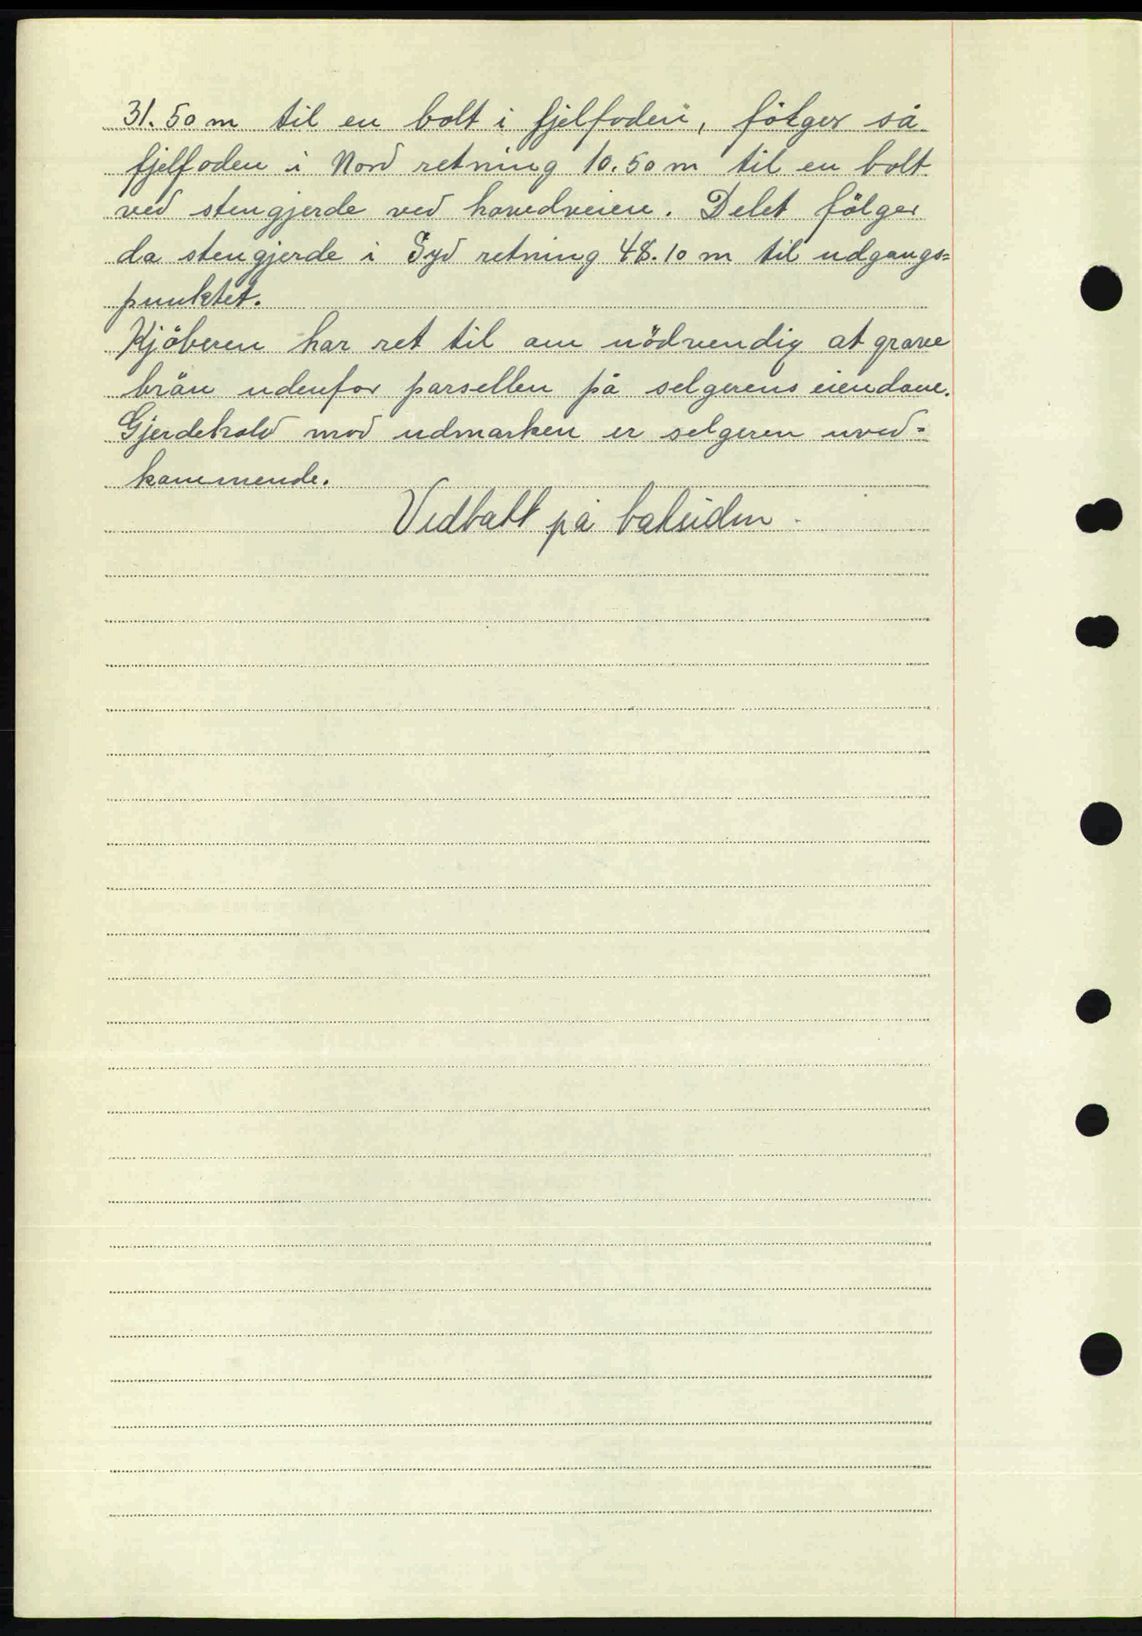 31.50 m til en bolt i fjelfoden, følger så
fjelfoden i Nord retning 10.50 m til en bolt
ved stengjerde ved hovedveien. Delet følger
da stengjerde i Syd retning 48.10 m til udgangs=
punktet.
Kjøberen har ret til om nødvendig at grave
brøn udenfor parsellen på selgerens eiendom.
Gjerdehold mod udmarken er selgeren uved=
kommende.
Vedtatt på baksiden.